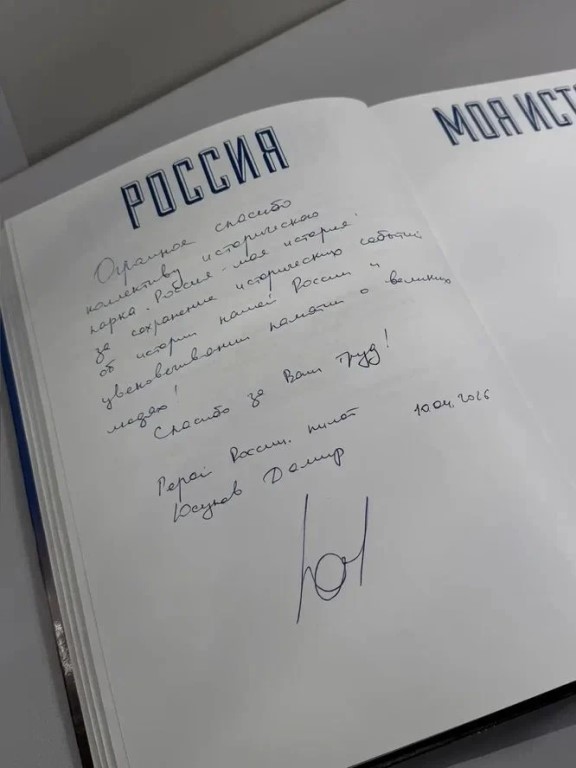 РОССИЯ
МОЯ ИСТ
Огромное спасибо
коллективу исторического
парка "Россия - моя история"
за сохранение исторических событий
об истории нашей России и
увековечивании памяти о великих
людях!
Спасибо за Ваш труд!
10.04.2026
Герой России, пилот
Юсупов Дамир